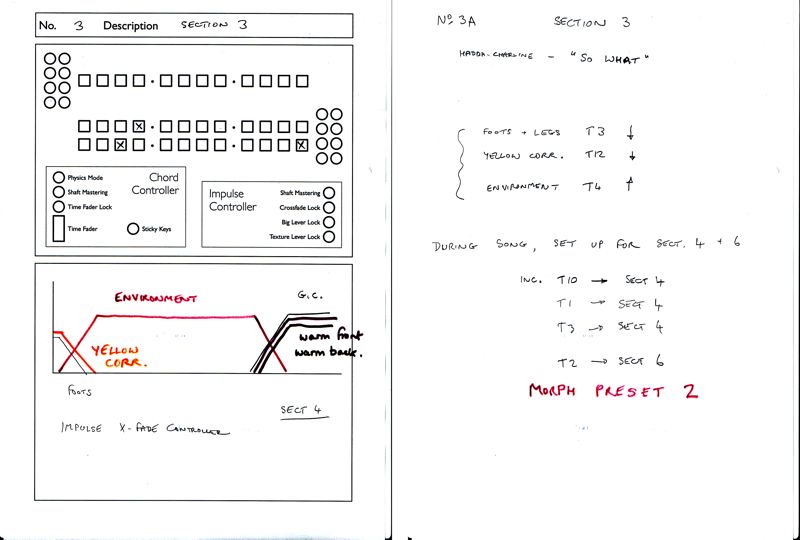 No. 3 Description SECTION 3
Physics Mode
Shaft Mastering
Time Fader Lock
Time Fader
Chord
Controller
Sticky Keys
Impulse
Controller
Shaft Mastering
Crossfade Lock
Big Lever Lock
Texture Lever Lock
ENVIRONMENT
G.C.
warm front
warm back.
YELLOW
CORR.
FOOTS
SECT 4
IMPULSE X-FADE CONTROLLER
No. 3A SECTION 3
- "SO WHAT"
FOOTS + LEGS T3 ↓
YELLOW CORR. T12 ↓
ENVIRONMENT T4 ↑
DURING SONG, SET UP FOR SECT. 4 + 6
INC. T10 → SECT 4
T1 → SECT 4
T3 → SECT 4
T2 → SECT 6
MORPH PRESET 2